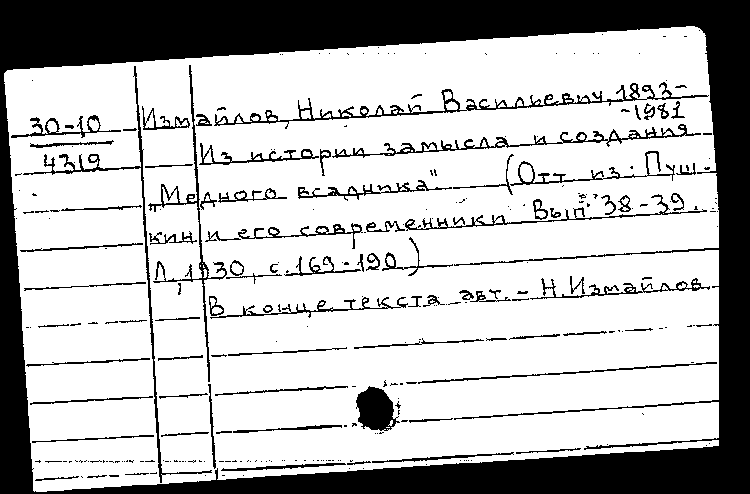 30-10
4319
Измайлов, Николай Васильевич, 1893-
-1981
Из истории замысла и создания
„Медного всадника". (Отт. из: Пуш-
кин и его современники. Вып. 38-39.
Л., 1930, с. 169-190)
В конце текста авт. - Н. Измайлов.